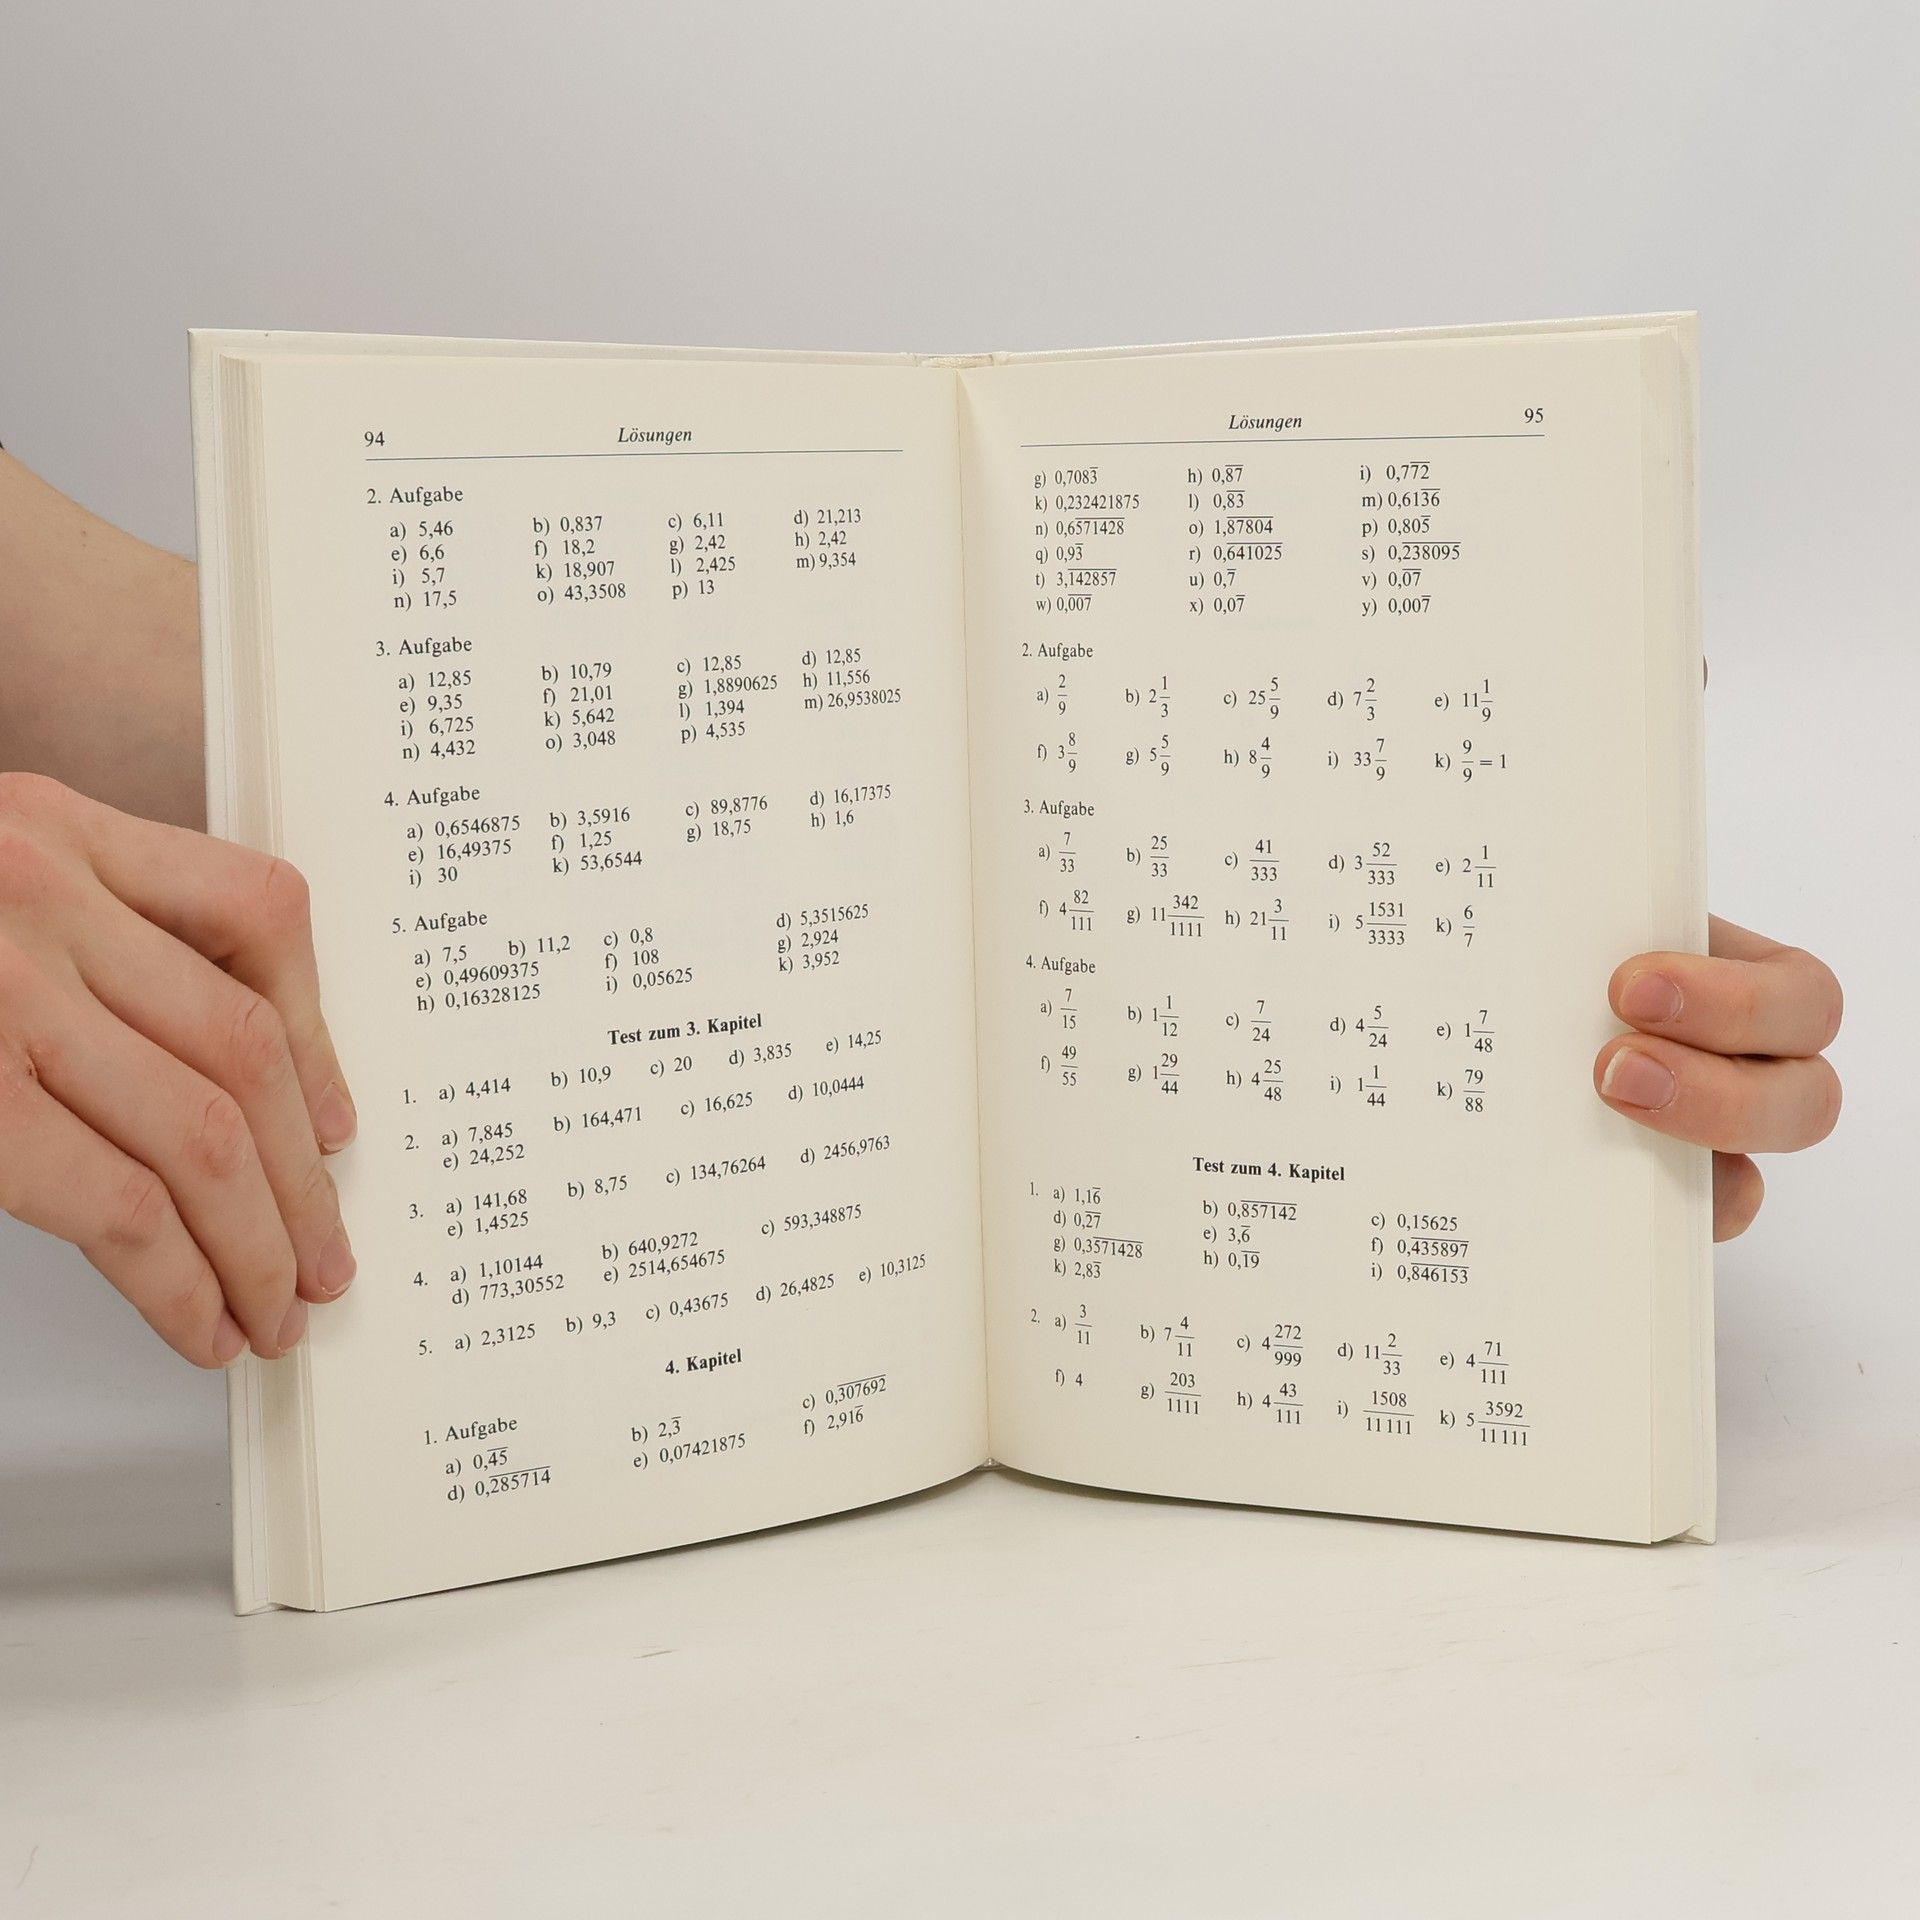 94 Lösungen
2. Aufgabe
a) 5,46 b) 0,837 c) 6,11 d) 21,213
e) 6,6 f) 18,2 g) 2,42 h) 2,42
i) 5,7 k) 18,907 l) 2,425 m) 9,354
n) 17,5 o) 43,3508 p) 13
3. Aufgabe
a) 12,85 b) 10,79 c) 12,85 d) 12,85
e) 9,35 f) 21,01 g) 1,8890625 h) 11,556
i) 6,725 k) 5,642 l) 1,394 m) 26,9538025
n) 4,432 o) 3,048 p) 4,535
4. Aufgabe
a) 0,6546875 b) 3,5916 c) 89,8776 d) 16,17375
e) 16,49375 f) 1,25 g) 18,75 h) 1,6
i) 30 k) 53,6544
5. Aufgabe
a) 7,5 b) 11,2 c) 0,8 d) 5,3515625
e) 0,49609375 f) 108 g) 2,924
h) 0,16328125 i) 0,05625 k) 3,952
Test zum 3. Kapitel
1. a) 4,414 b) 10,9 c) 20 d) 3,835 e) 14,25
2. a) 7,845 b) 164,471 c) 16,625 d) 10,0444
e) 24,252
3. a) 141,68 b) 8,75 c) 134,76264 d) 2456,9763
e) 1,4525
4. a) 1,10144 b) 640,9272 c) 593,348875
d) 773,30552 e) 2514,654675
5. a) 2,3125 b) 9,3 c) 0,43675 d) 26,4825 e) 10,3125
4. Kapitel
1. Aufgabe
a) 0,4̅5̅ b) 2,3̅ c) 0,3̅0̅7̅6̅9̅2̅
d) 0,2̅8̅5̅7̅1̅4̅ e) 0,07421875 f) 2,916̅
Lösungen 95
g) 0,7083̅ h) 0,8̅7̅ i) 0,77̅2̅
k) 0,232421875 l) 0,8̅3̅ m) 0,613̅6̅
n) 0,65̅7̅1̅4̅2̅8̅ o) 1,8̅7̅8̅0̅4̅ p) 0,805̅
q) 0,93̅ r) 0,6̅4̅1̅0̅2̅5̅ s) 0,2̅3̅8̅0̅9̅5̅
t) 3,1̅4̅2̅8̅5̅7̅ u) 0,7̅ v) 0,0̅7̅
w) 0,0̅0̅7̅ x) 0,07̅ y) 0,007̅
2. Aufgabe
a) 2/9 b) 2 1/3 c) 25 5/9 d) 7 2/3 e) 11 1/9
f) 3 8/9 g) 5 5/9 h) 8 4/9 i) 33 7/9 k) 9/9 = 1
3. Aufgabe
a) 7/33 b) 25/33 c) 41/333 d) 3 52/333 e) 2 1/11
f) 4 82/111 g) 11 342/1111 h) 21 3/11 i) 5 1531/3333 k) 6/7
4. Aufgabe
a) 7/15 b) 1 1/12 c) 7/24 d) 4 5/24 e) 1 7/48
f) 49/55 g) 1 29/44 h) 4 25/48 i) 1 1/44 k) 79/88
Test zum 4. Kapitel
1. a) 1,16̅ b) 0,8̅5̅7̅1̅4̅2̅ c) 0,15625
d) 0,2̅7̅ e) 3,6̅ f) 0,4̅3̅5̅8̅9̅7̅
g) 0,35̅7̅1̅4̅2̅8̅ h) 0,1̅9̅ i) 0,8̅4̅6̅1̅5̅3̅
k) 2,83̅
2. a) 3/11 b) 7 4/11 c) 4 272/999 d) 11 2/33 e) 4 71/111
f) 4 g) 203/1111 h) 4 43/111 i) 1508/11111 k) 5 3592/11111